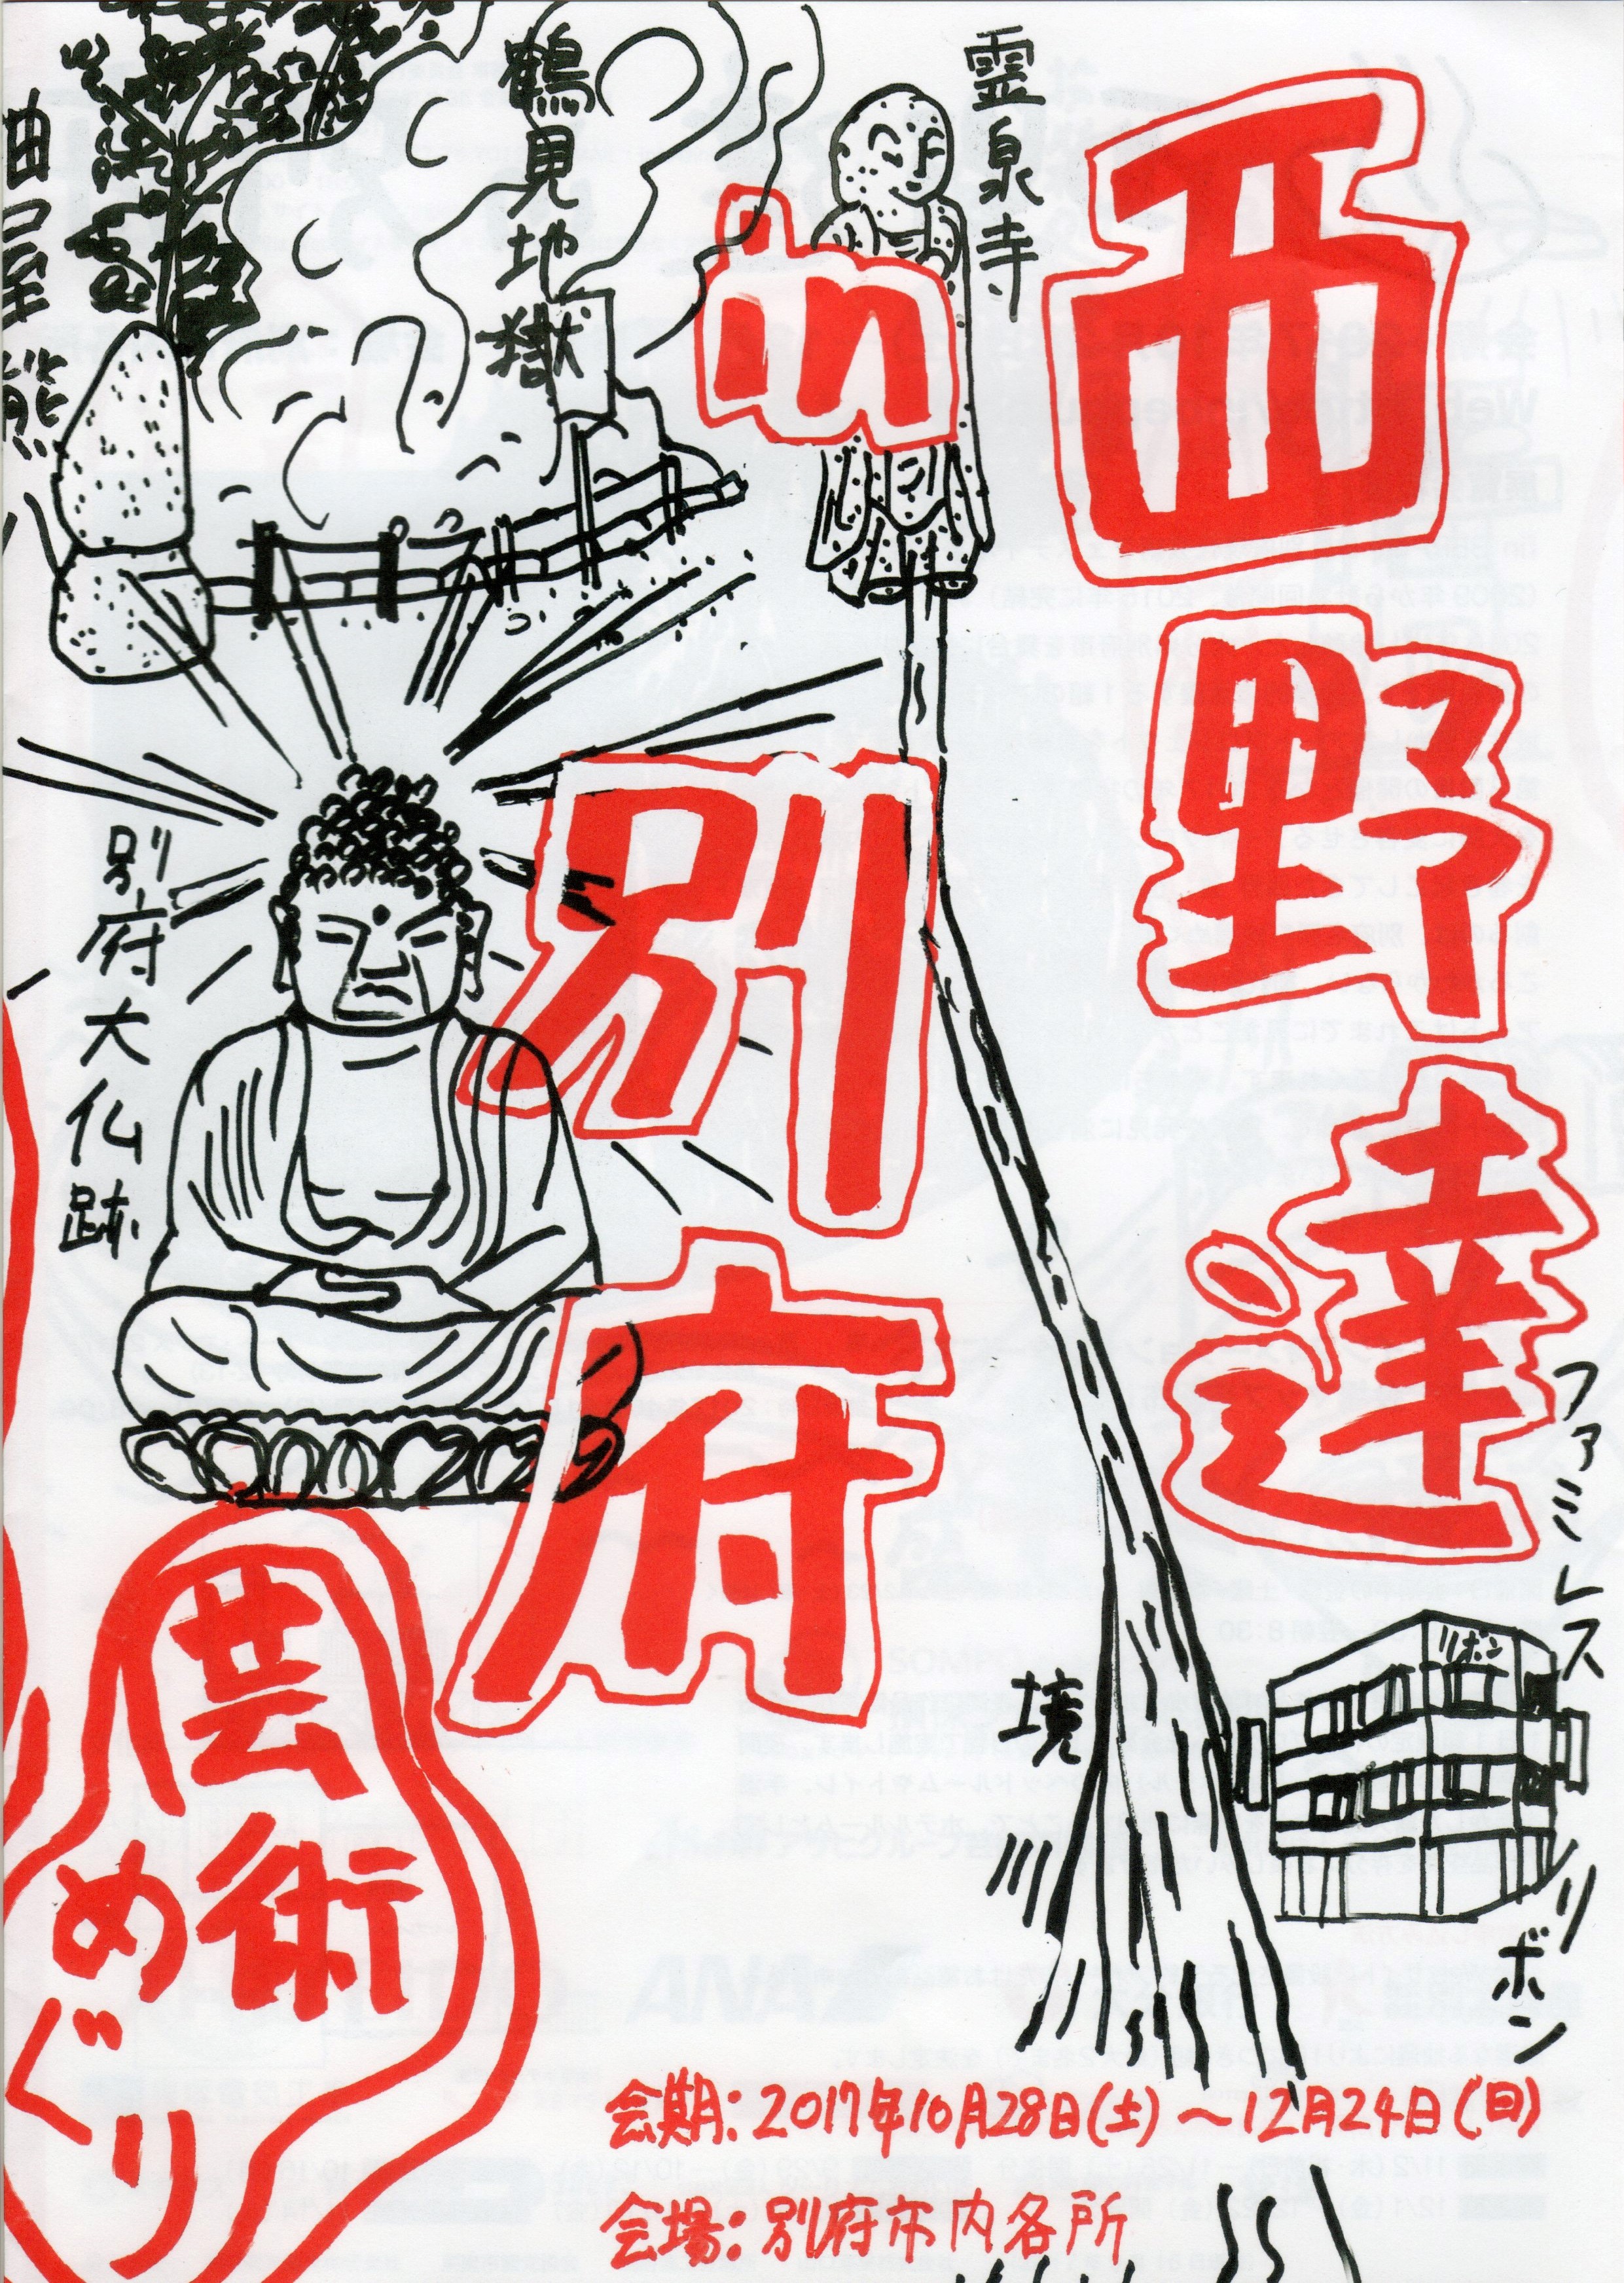 西野達
in
別府
霊泉寺
鶴見地獄
油屋熊八
別府大仏跡
ファミレスリボン
リボン
境
芸術
めぐり
会期：2017年10月28日(土)～12月24日(日)
会場：別府市内各所